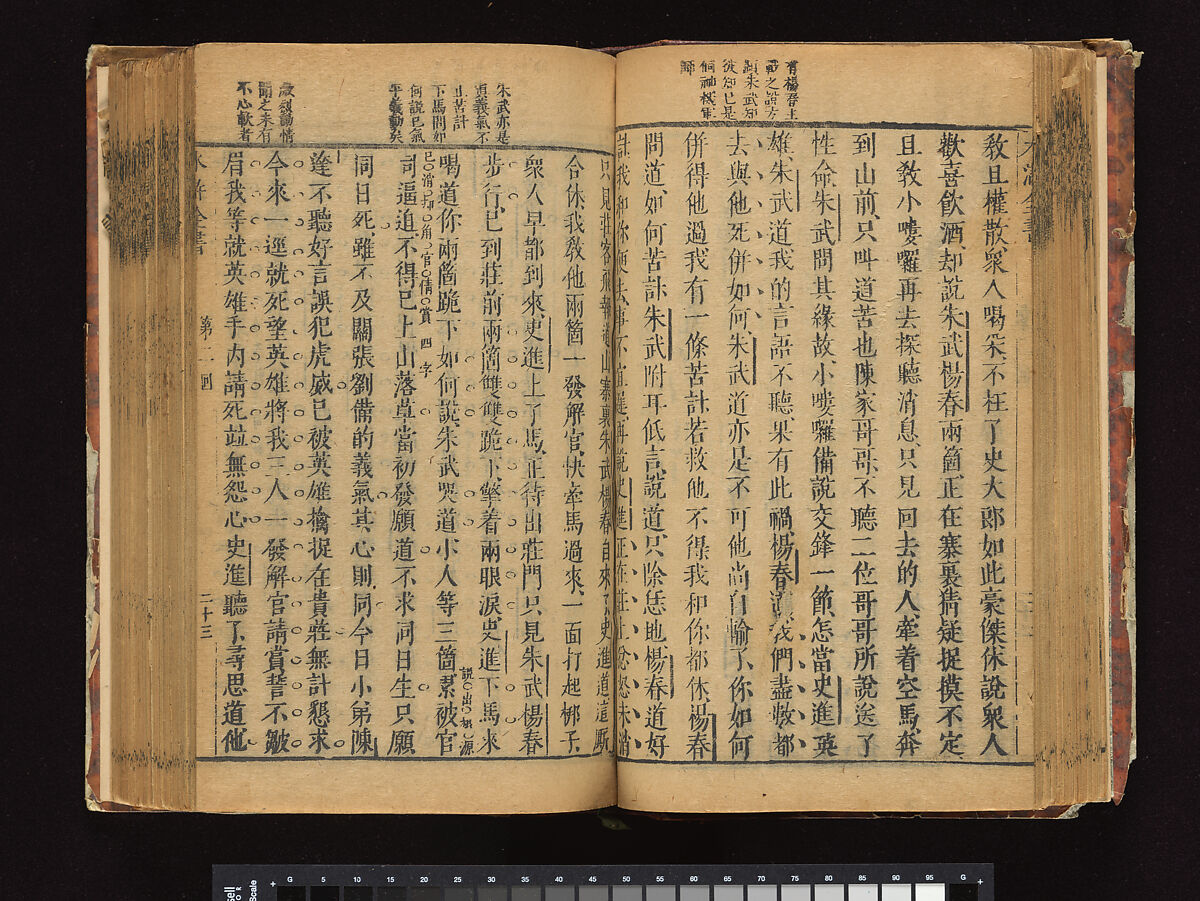 水滸全書
教且權散衆人喝采不枉了史大郎如此豪傑休說衆人
歡喜飲酒却說朱武楊春兩箇正在寨裏猜疑捉摸不定
且教小嘍囉再去探聽消息只見回去的人牽着空馬奔
到山前只叫道苦也陳家哥哥不聽二位哥哥所說送了
性命朱武問其緣故小嘍囉備說交鋒一節怎當史進英
雄朱武道我的言語不聽果有此禍楊春道我們盡數都
去與他死併如何朱武道亦是不可他尚自輸了你如何
併得他過我有一條苦計若救他不得我和你都休楊春
問道如何苦計朱武附耳低言說道只除恁地楊春道好
計我和你便去事不宜遲再說史進正在莊上忿怒未消
有楊春上
只見莊客飛報道山寨裏朱武楊春自來了史進道這厮
合休我教他兩箇一發解官快牽馬過來一面打起梆子
衆人早都到來史進上了馬正待出莊門只見朱武楊春
步行已到莊前兩箇雙雙跪下擎着兩眼淚史進下馬來
喝道你兩箇跪下如何說朱武哭道小人等三箇累被官
司逼迫不得已上山落草當初發願道不求同日生只願
同日死雖不及關張劉備的義氣其心則同今日小弟陳
逹不聽好言誤犯虎威已被英雄擒捉在貴莊無計懇求
今來一逕就死望英雄將我三人一發解官請賞誓不皺
眉我等就英雄手內請死並無怨心史進聽了尋思道他
朱武亦是
真義氣不
止苦計
下馬問如
何說已氣
平義動矣
激烈動情
聞之未有
不心軟者
水滸全書
第二回
二十三